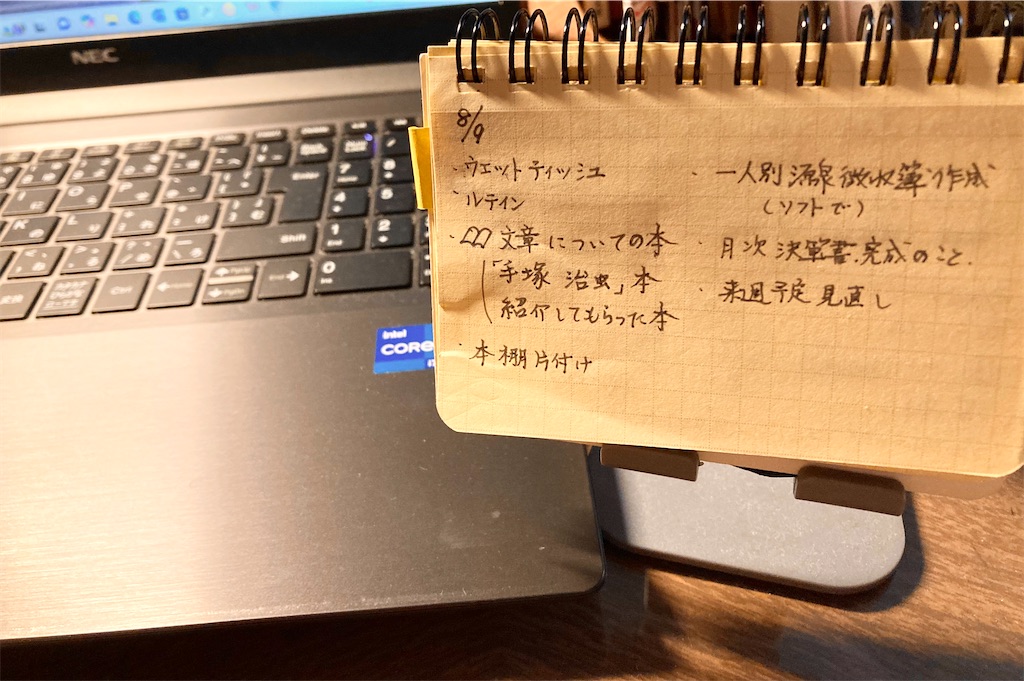 NEC
8/9
・ウェットティッシュ
・ルテイン
・文章についての本
「手塚 治虫」本
紹介してもらった本
・本棚片付け
・一人別源泉徴収簿作成
(ソフトで)
・月次決算書.完成のこと.
・来週予定見直し
intel
CORE
Enter
Shift
Ctrl
End
7
4
1
2
0